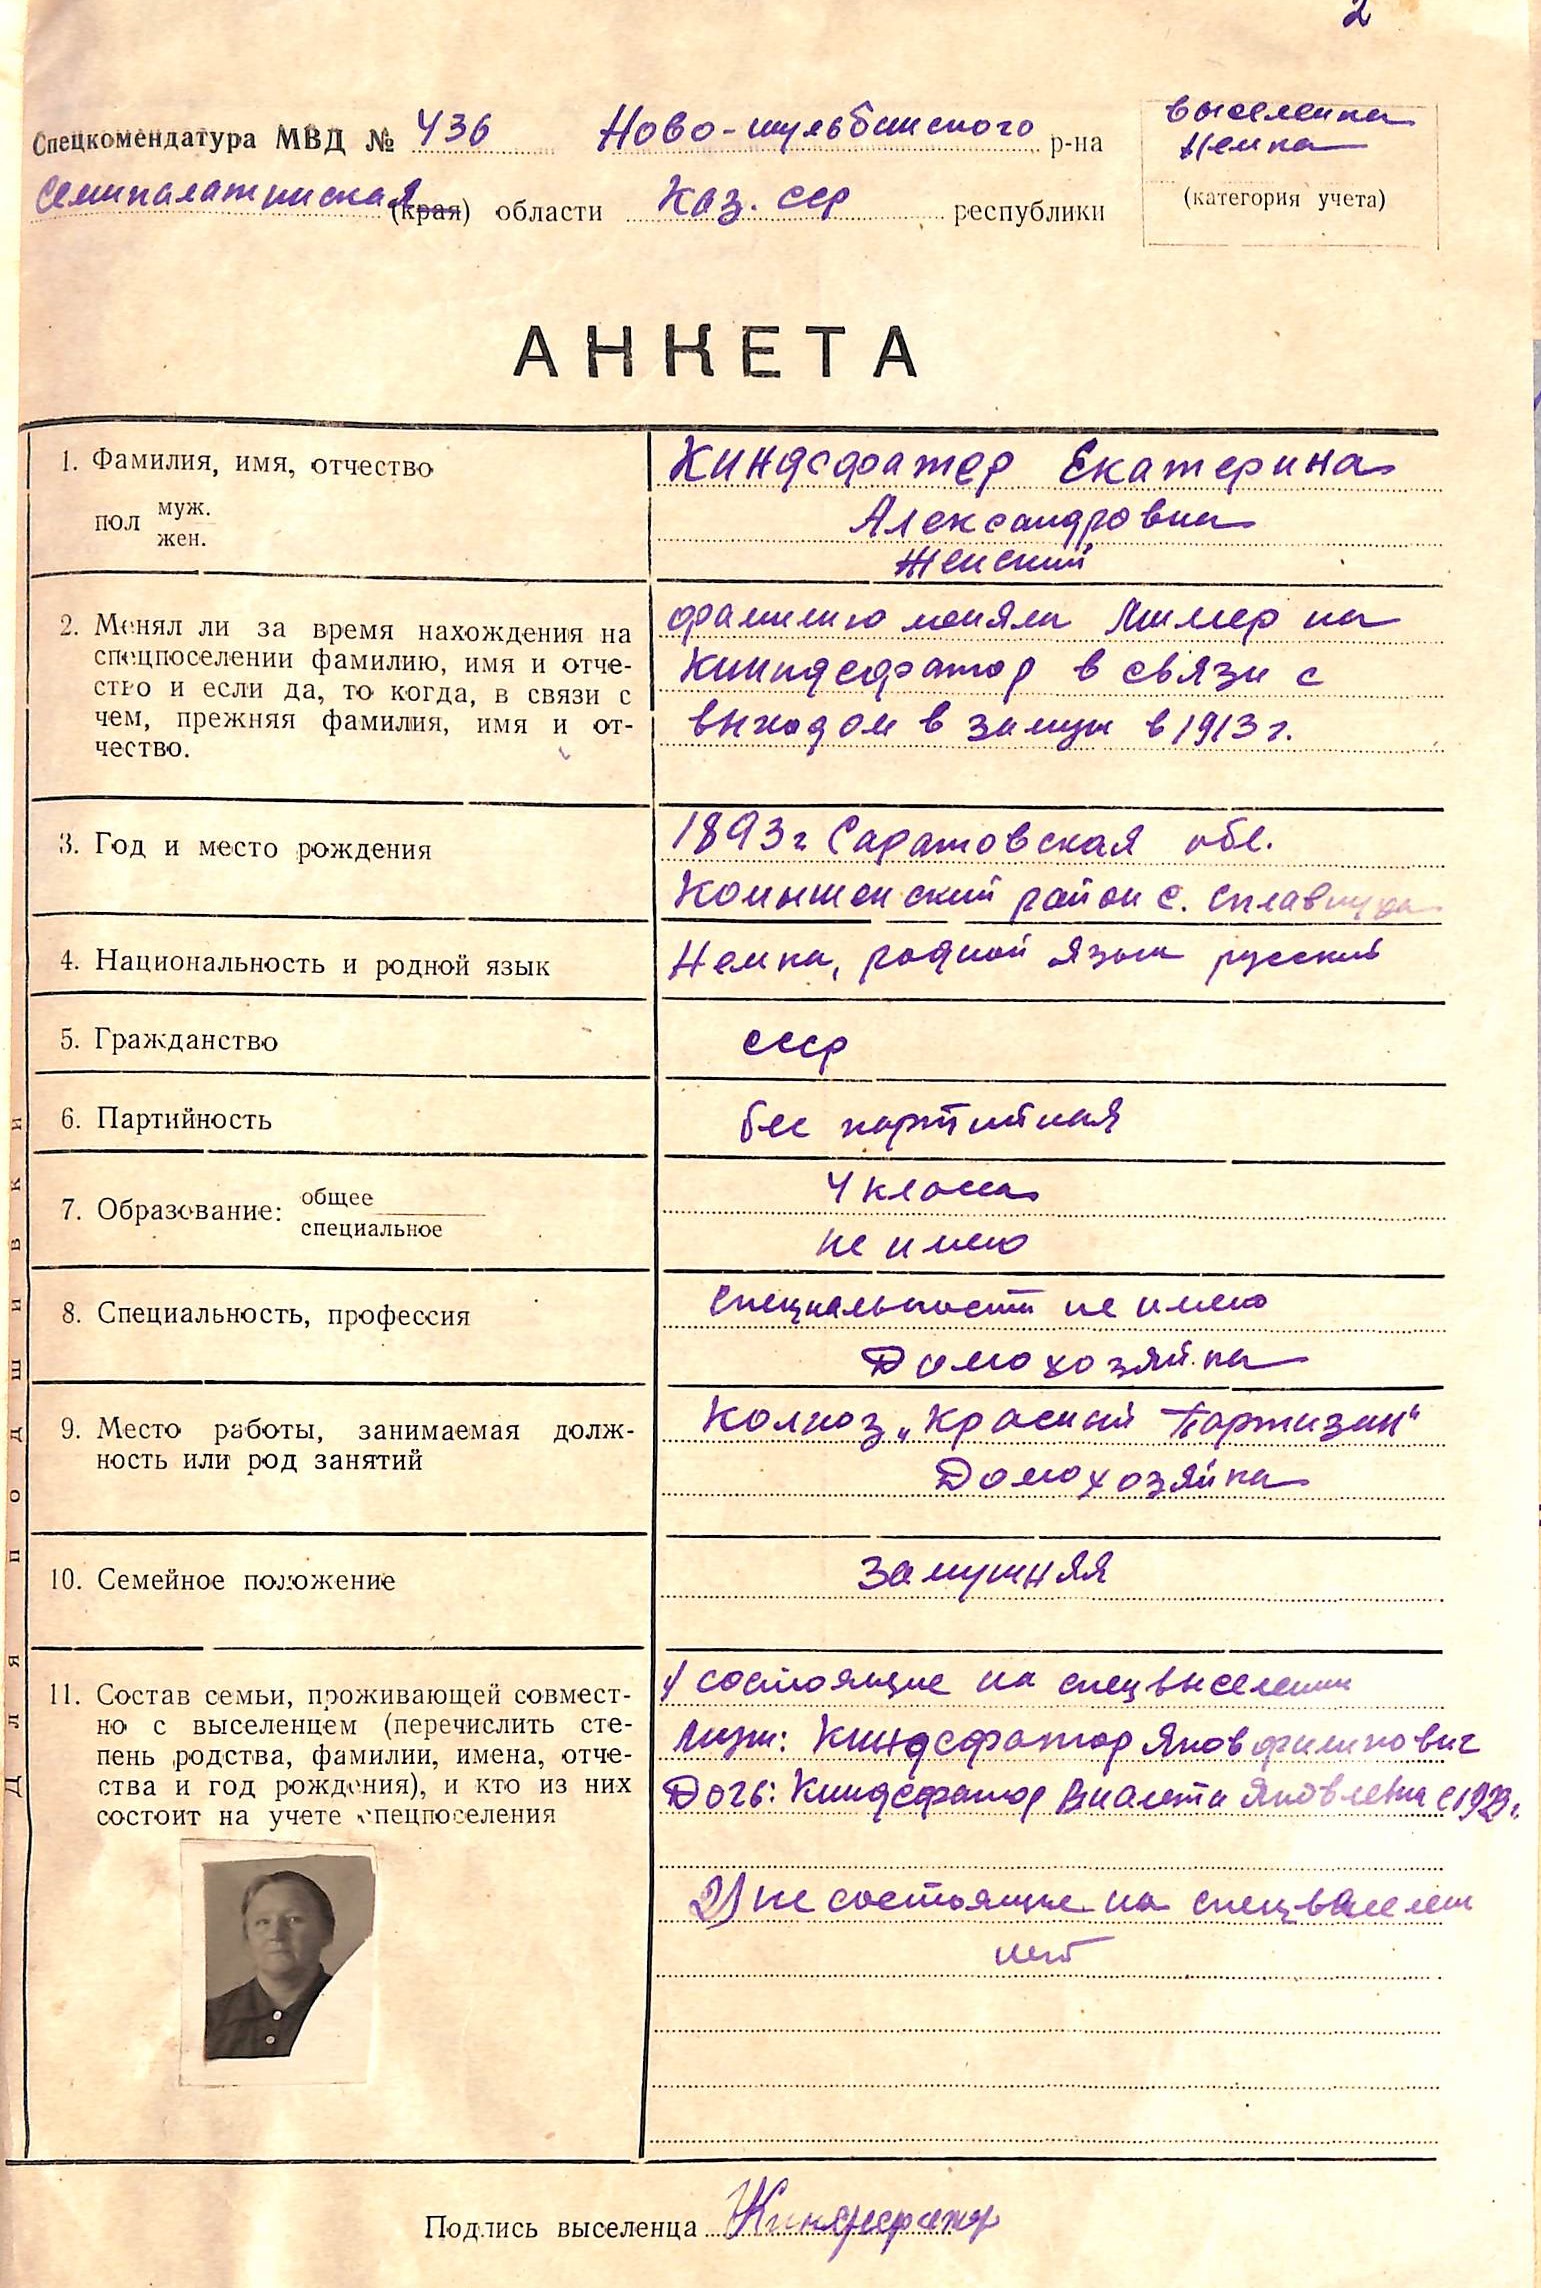 2
Спецкомендатура МВД № 436 Ново-шульбинского р-на
выселенка
немка
(категория учета)
Семипалатинская (края) области Каз. сср республики
АНКЕТА
1. Фамилия, имя, отчество
пол муж.
жен.
Киндсфатер Екатерина
Александровна
Женский
2. Менял ли за время нахождения на
спецпоселении фамилию, имя и отче-
ство и если да, то когда, в связи с
чем, прежняя фамилия, имя и от-
чество.
фамилию меняла Миллер на
Киндсфатер в связи с
выходом в замуж в 1913 г.
3. Год и место рождения
1893 г Саратовская обл.
район с.
4. Национальность и родной язык
Немка, родной язык русский
5. Гражданство
ссср
6. Партийность
бес партийная
7. Образование: общее
специальное
4 класса
не имею
8. Специальность, профессия
Специальности не имею
Домохозяйка
9. Место работы, занимаемая долж-
ность или род занятий
Колхоз „Красный Партизан"
Домохозяйка
10. Семейное положение
Замужняя
11. Состав семьи, проживающей совмест-
но с выселенцем (перечислить сте-
пень родства, фамилии, имена, отче-
ства и год рождения), и кто из них
состоит на учете спецпоселения
1) состоящие на спецвыселении
Муж: Киндсфатер Яков Филипович
Дочь: Киндсфатер Виалета Яковлевна
2) не состоящие на
нет
Для подшивки
Подпись выселенца Киндсфатер